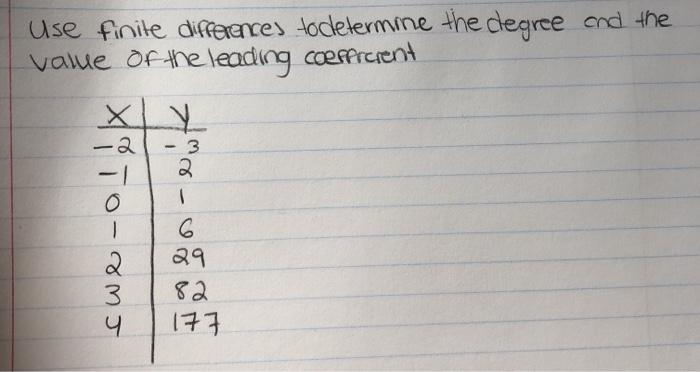 Use finite differences to determine the degree and the
value of the leading coefficient
x y
-2 -3
-1 2
0 1
1 6
2 29
3 82
4 177